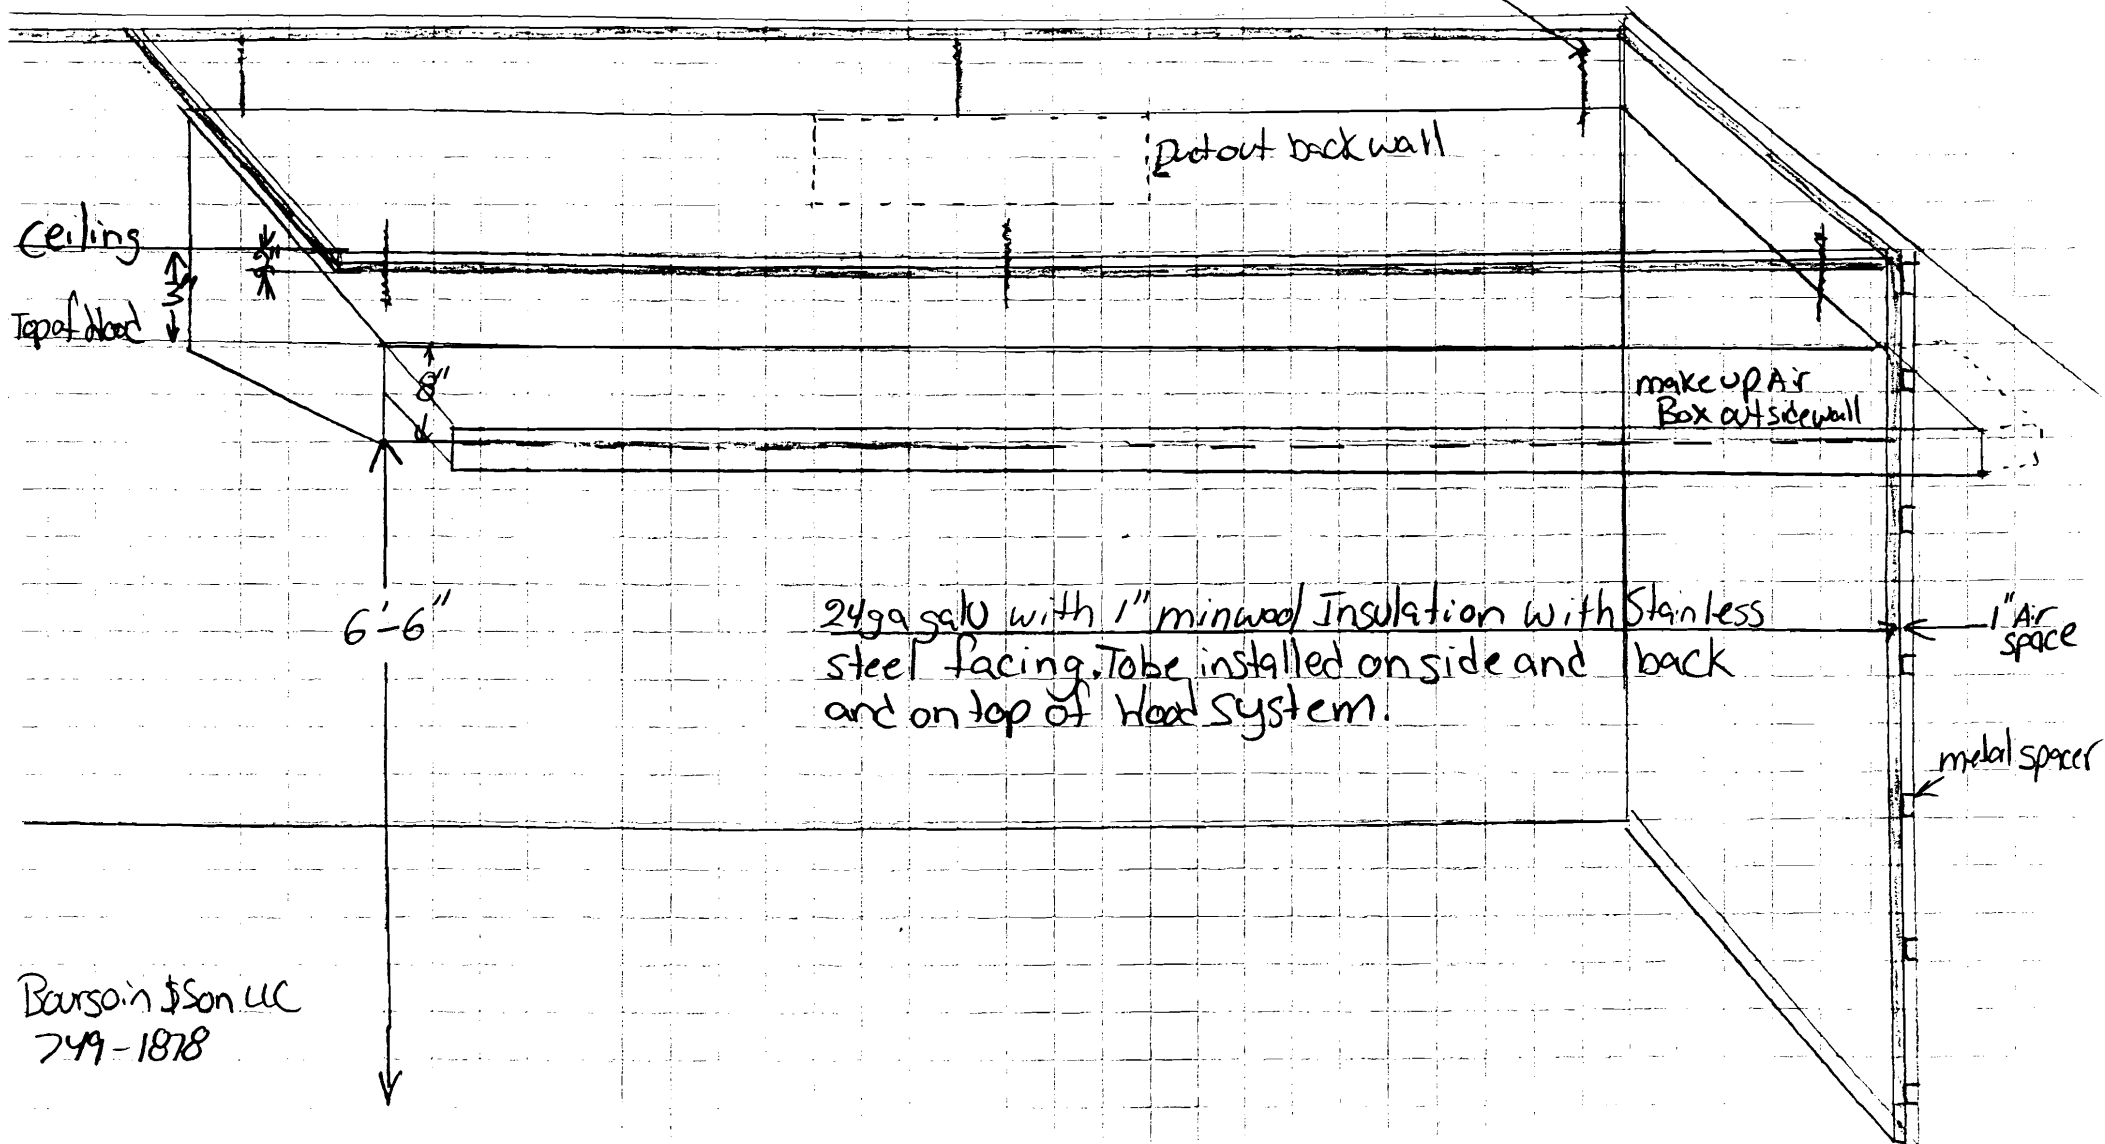 Ductout back wall
Ceiling
3"
Top of Hood
8"
make up Air
Box out sidewall
6'-6"
24ga galv with 1" minwool Insulation with Stainless
steel facing. To be installed on side and back
and on top of Hood system.
1" Air
space
metal spacer
Boursoin & Son LLC
749-1878